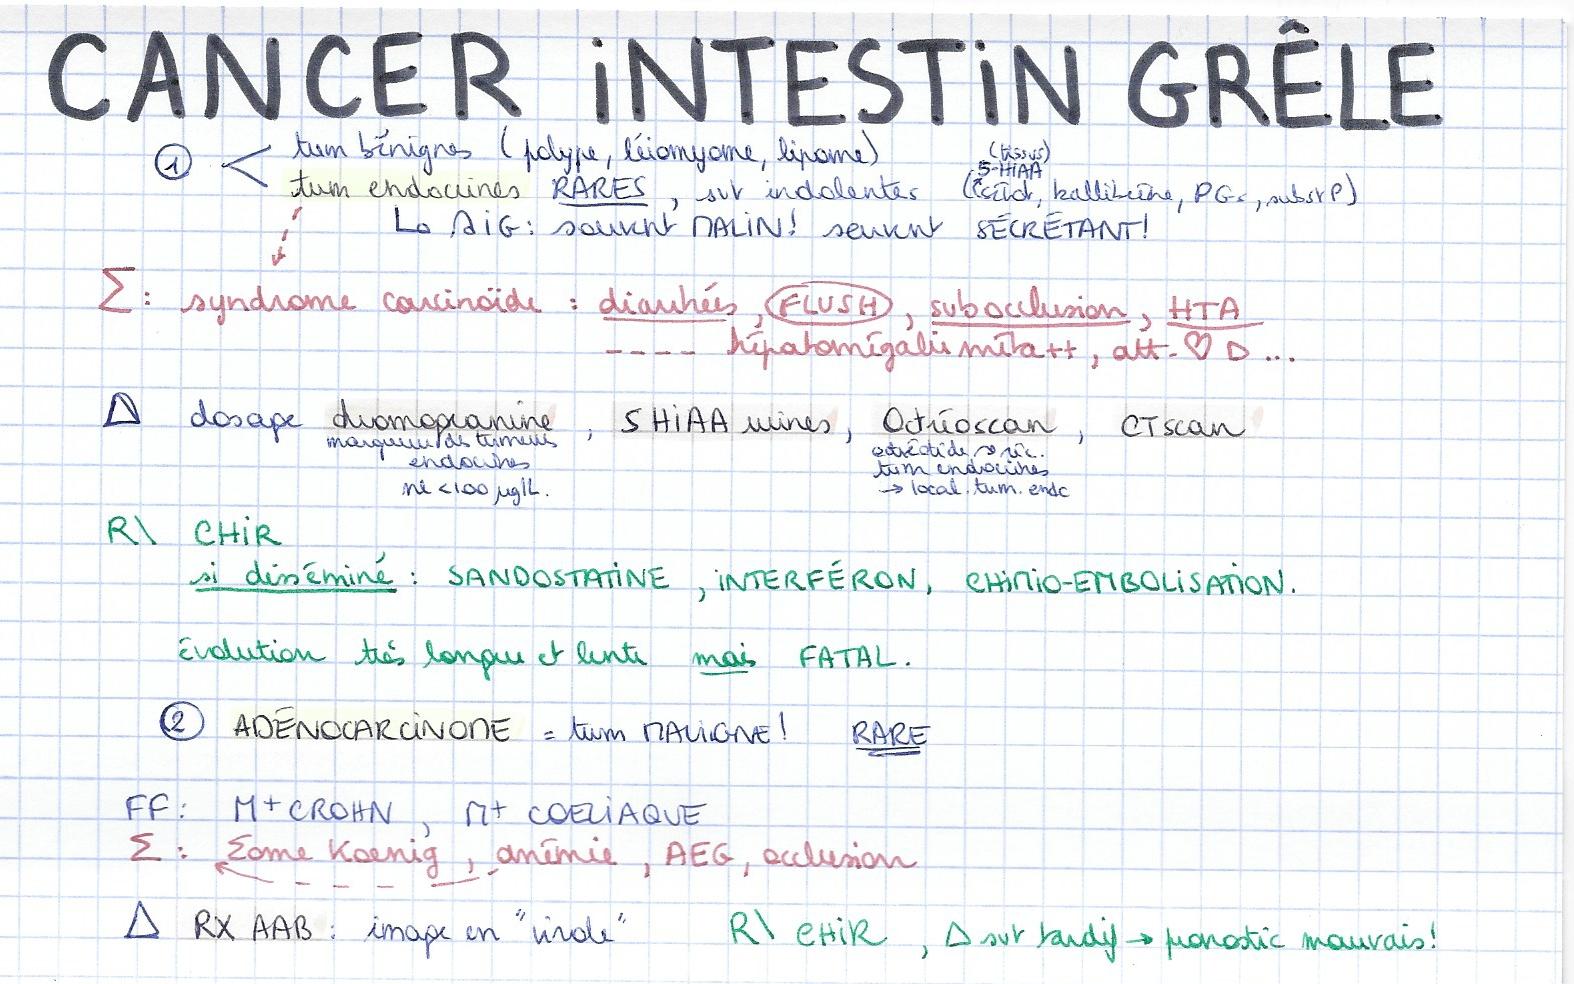 CANCER INTESTIN GRÊLE
① < tum bénignes (polype, léiomyome, lipome)
tum endocrines RARES, svt indolentes (kallikréine, PGs, subst P)
(tissus)
5-HIAA
↳ DIG: souvent MALIN! souvent SÉCRÉTANT!
Σ: syndrome carcinoïde : diarrhées, FLUSH, subocclusion, HTA
---- hépatomégalie méta++, att. ♡ D ...
Δ dosage chromogranine, 5HIAA urines, Octréoscan, CTscan
marqueur des tumeurs
endocrines
nl <100 µg/L.
octréotide → réc.
tum endocrines
→ local. tum. endc
R\ CHIR
si disséminé : SANDOSTATINE, INTERFÉRON, CHIMIO-EMBOLISATION.
Évolution très longue et lente mais FATAL.
② ADÉNOCARCINOME = tum MALIGNE! RARE
FF: M+ CROHN, M+ COELIAQUE
Σ: Σome Koenig, anémie, AEG, occlusion
Δ RX AAB: image en "virole" R\ CHIR, Δ svt tardif → pronostic mauvais!